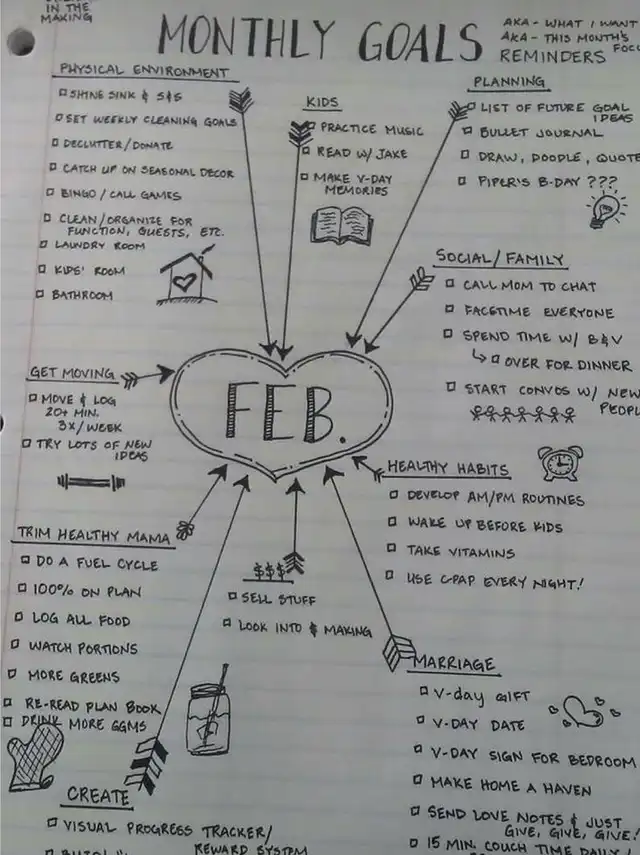 IN THE
MAKING
MONTHLY GOALS
AKA - WHAT I WANT
AKA - THIS MONTH'S FOC
REMINDERS
PHYSICAL ENVIRONMENT
SHINE SINK & S&S
SET WEEKLY CLEANING GOALS
DECLUTTER/DONATE
CATCH UP ON SEASONAL DECOR
BINGO/CALL GAMES
CLEAN/ORGANIZE FOR
FUNCTION, GUESTS, ETC.
LAUNDRY ROOM
KIDS' ROOM
BATHROOM
KIDS
PRACTICE MUSIC
READ W/ JAKE
MAKE V-DAY
MEMORIES
PLANNING
LIST OF FUTURE GOAL
IDEAS
BULLET JOURNAL
DRAW, DOODLE, QUOTE
PIPER'S B-DAY ???
SOCIAL/FAMILY
CALL MOM TO CHAT
FACETIME EVERYONE
SPEND TIME W/ B&V
OVER FOR DINNER
START CONVOS W/ NEW
PEOPL
GET MOVING
MOVE & LOG
20+ MIN.
3X/WEEK
TRY LOTS OF NEW
IDEAS
FEB.
HEALTHY HABITS
DEVELOP AM/PM ROUTINES
WAKE UP BEFORE KIDS
TAKE VITAMINS
USE C-PAP EVERY NIGHT!
TRIM HEALTHY MAMA
DO A FUEL CYCLE
100% ON PLAN
LOG ALL FOOD
WATCH PORTIONS
MORE GREENS
RE-READ PLAN BOOK
DRINK MORE GGMS
$$$
SELL STUFF
LOOK INTO $ MAKING
MARRIAGE
V-day GIFT
V-DAY DATE
V-DAY SIGN FOR BEDROOM
MAKE HOME A HAVEN
SEND LOVE NOTES & JUST
GIVE, GIVE, GIVE!
15 MIN. COUCH TIME DAILY!
CREATE
VISUAL PROGRESS TRACKER/
REWARD SYSTEM